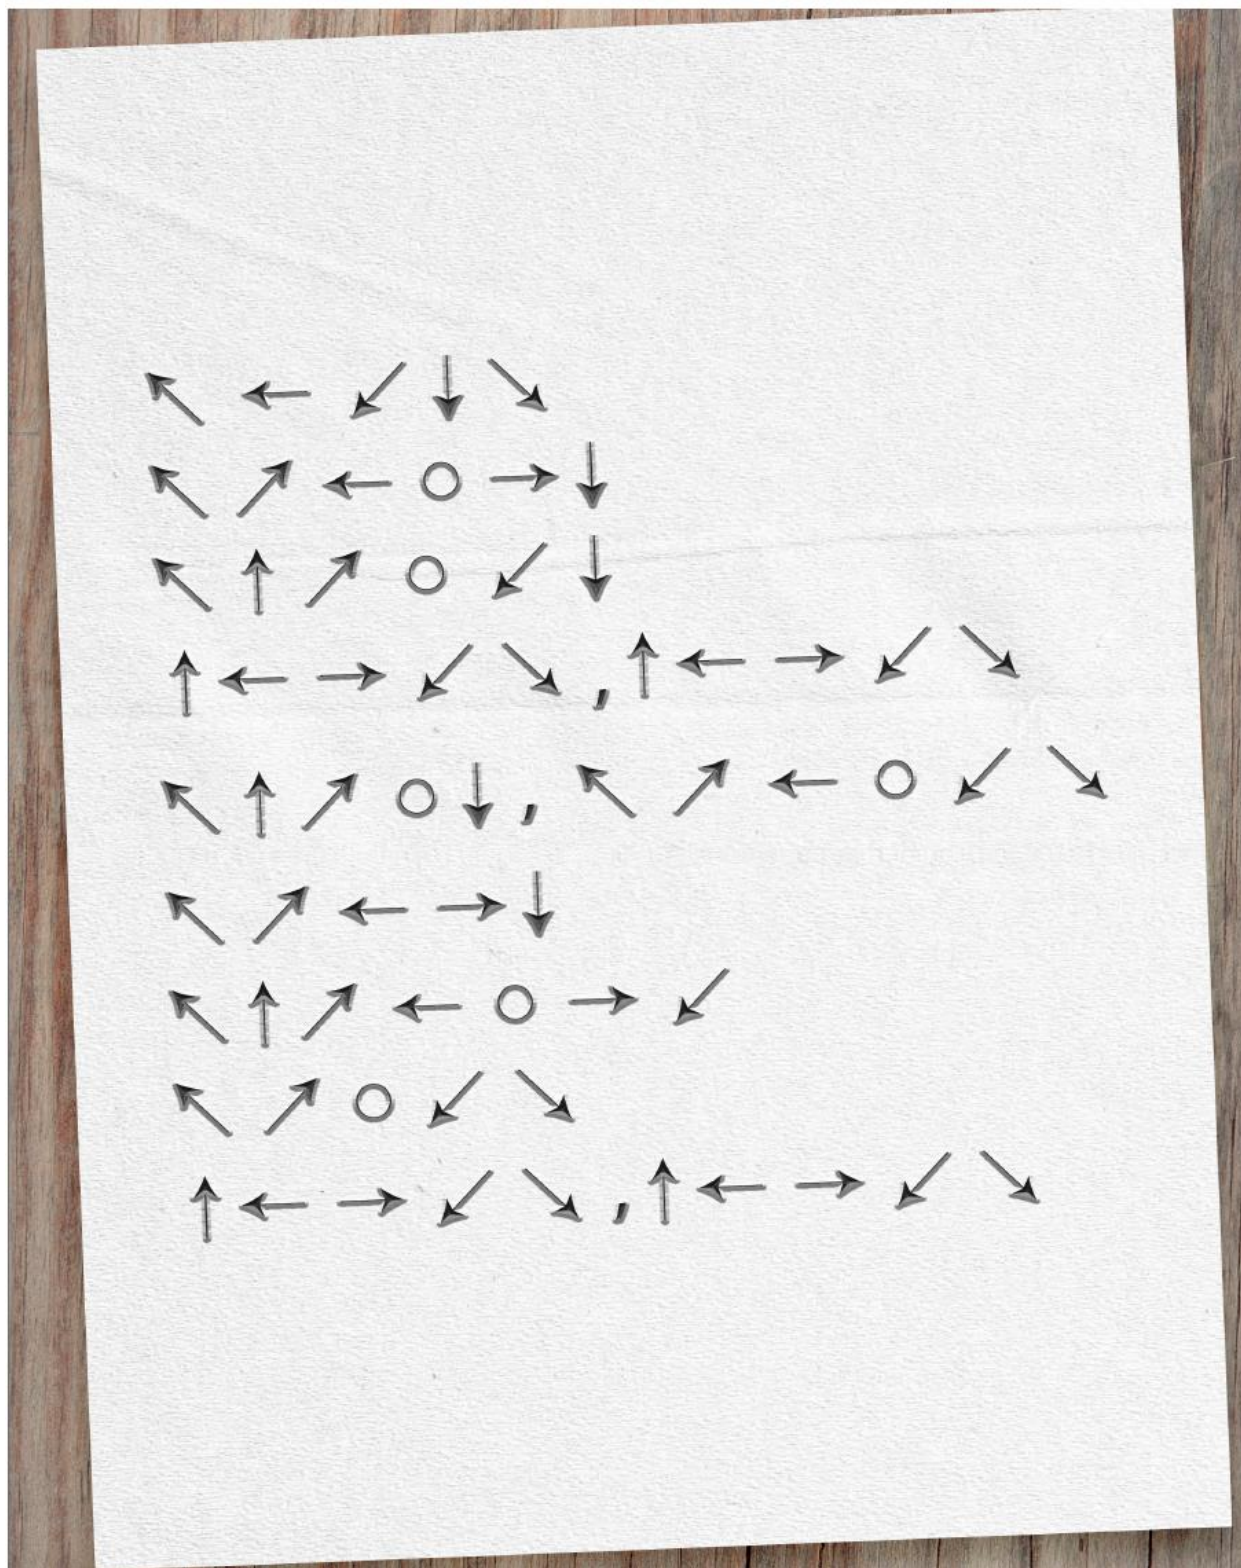 ↖ ← ↙ ↓ ↘
↖ ↗ ← ○ → ↓
↖ ↑ ↗ ○ ↙ ↓
↑ ← → ↙ ↘ , ↑ ← → ↙ ↘
↖ ↑ ↗ ○ ↓ , ↖ ↗ ← ○ ↙ ↘
↖ ↗ ← → ↓
↖ ↑ ↗ ← ○ → ↙
↖ ↗ ○ ↙ ↘
↑ ← → ↙ ↘ , ↑ ← → ↙ ↘